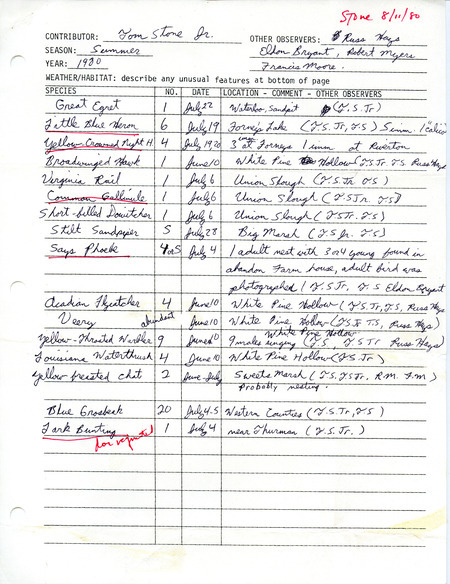 Stone 8/11/80
CONTRIBUTOR: Tom Stone Jr. OTHER OBSERVERS: Russ Hays
SEASON: Summer Eldon Bryant, Robert Myers
YEAR: 1980 Francis Moore.
WEATHER/HABITAT: describe any unusual features at bottom of page
SPECIES NO. DATE LOCATION - COMMENT - OTHER OBSERVERS
Great Egret 1 July 22 Waterloo, Sandpit (T.S. Jr)
Little Blue Heron 6 July 19 Forneys Lake (T.S. Jr, T.S) 5 imm. 1 "Calico"
Yellow-Crowned Night H. 4 July 19,20 3 at Forneys 1 imm at Riverton
Broadwinged Hawk 1 June 10 White Pine Hollow (T.S. Jr. T.S. Russ Hays
Virginia Rail 1 July 6 Union Slough (T.S. Jr T.S)
Common Gallinule 1 July 6 Union Slough (T.S Jr. T.S)
Short-billed Dowitcher 1 July 6 Union Slough (T.S Jr. T.S)
Stilt Sandpiper 5 July 28 Big Marsh (T.S Jr. T.S)
Says Phoebe 4 or 5 July 4 1 adult nest with 3 or 4 young found in
abandon Farm house, adult bird was
photographed (T.S. Jr, T.S Eldon Bryant
Acadian Flycatcher 4 June 10 White Pine Hollow (T.S. Jr, T.S, Russ Hays
Veery abundant June 10 White Pine Hollow (T.S Jr T.S, Russ Hays)
White Pine Hollow
Yellow-Throated Warbler 9 June 10 9 males singing (T.S, T.S Jr Russ Hays)
Louisiana Waterthrush 4 June 10 White Pine Hollow (T.S Jr)
Yellow breasted Chat 2 June-July Sweets Marsh (T.S, T.S Jr, R.M. F.M)
Probably nesting.
Blue Grosbeak 20 July 4-5 Western Counties (T.S. Jr, T.S)
Lark Bunting 1 July 4 near Thurman (T.S. Jr.)